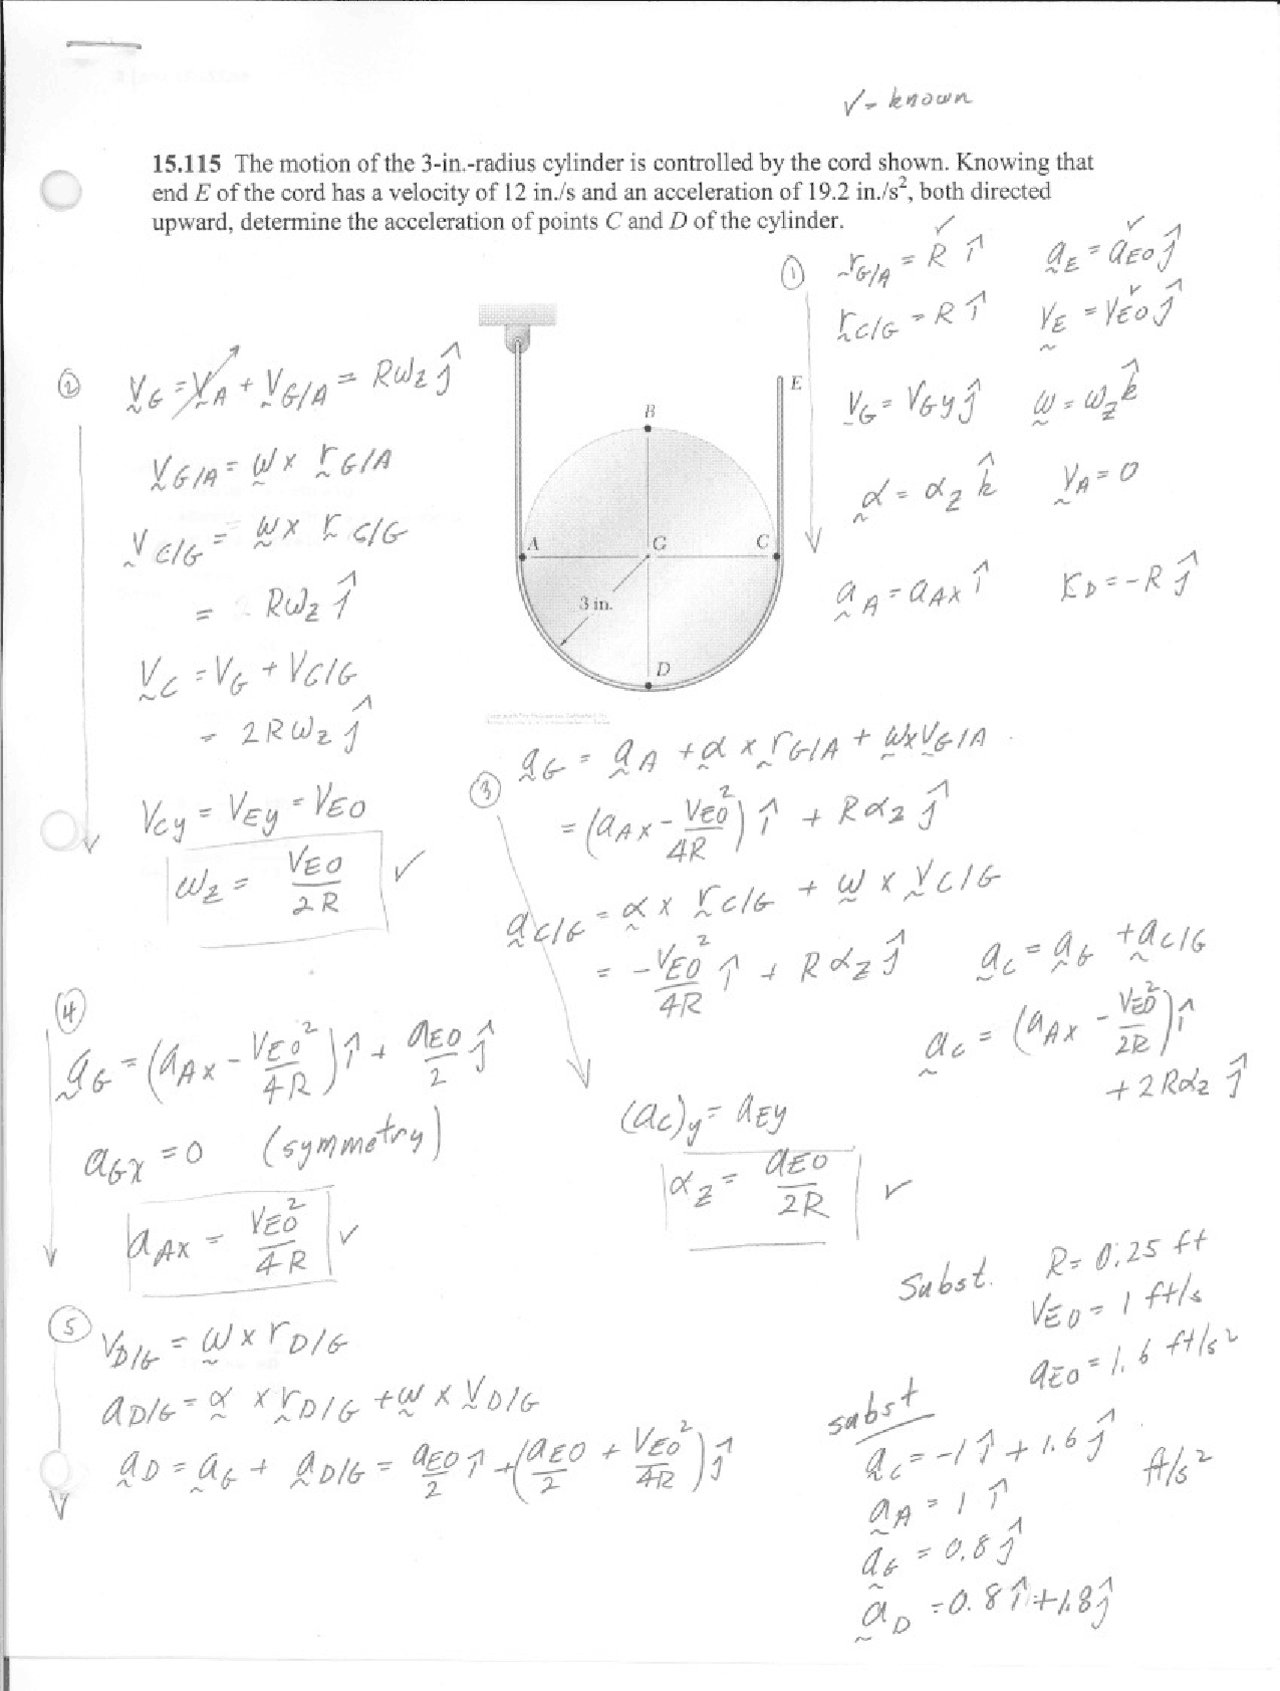 ✓ - known
15.115 The motion of the 3-in.-radius cylinder is controlled by the cord shown. Knowing that
end E of the cord has a velocity of 12 in./s and an acceleration of 19.2 in./s², both directed
upward, determine the acceleration of points C and D of the cylinder.
① r_G/A = R î   a_E = a_EO ĵ
r_C/G = R î   v_E = v_EO ĵ
v_G = v_Gy ĵ   ω = ω_z k̂
α = α_z k̂   v_A = 0
a_A = a_Ax î   r_D = -R ĵ
② v_G = v_A + v_G/A = Rω_z ĵ
v_G/A = ω × r_G/A
v_C/G = ω × r_C/G
= Rω_z ĵ
v_C = v_G + v_C/G
= 2Rω_z ĵ
v_Cy = v_Ey = v_EO
ω_z = v_EO / 2R ✓
E
B
A
G
C
3 in.
D
③ a_G = a_A + α × r_G/A + ω × v_G/A
= (a_Ax - v_EO² / 4R) î + Rα_z ĵ
a_C/G = α × r_C/G + ω × v_C/G
= -v_EO² / 4R î + Rα_z ĵ
a_C = a_G + a_C/G
a_C = (a_Ax - v_EO² / 2R) î
+ 2Rα_z ĵ
(a_C)_y = a_Ey
α_z = a_EO / 2R ✓
④
a_G = (a_Ax - v_EO² / 4R) î + a_EO / 2 ĵ
a_Gx = 0 (symmetry)
a_Ax = v_EO² / 4R ✓
⑤ v_D/G = ω × r_D/G
a_D/G = α × r_D/G + ω × v_D/G
a_D = a_G + a_D/G = a_EO / 2 î + (a_EO / 2 + v_EO² / 4R) ĵ
Subst. R = 0.25 ft
v_EO = 1 ft/s
a_EO = 1.6 ft/s²
subst
a_C = -1 î + 1.6 ĵ   ft/s²
a_A = 1 î
a_G = 0.8 ĵ
a_D = 0.8 î + 1.8 ĵ